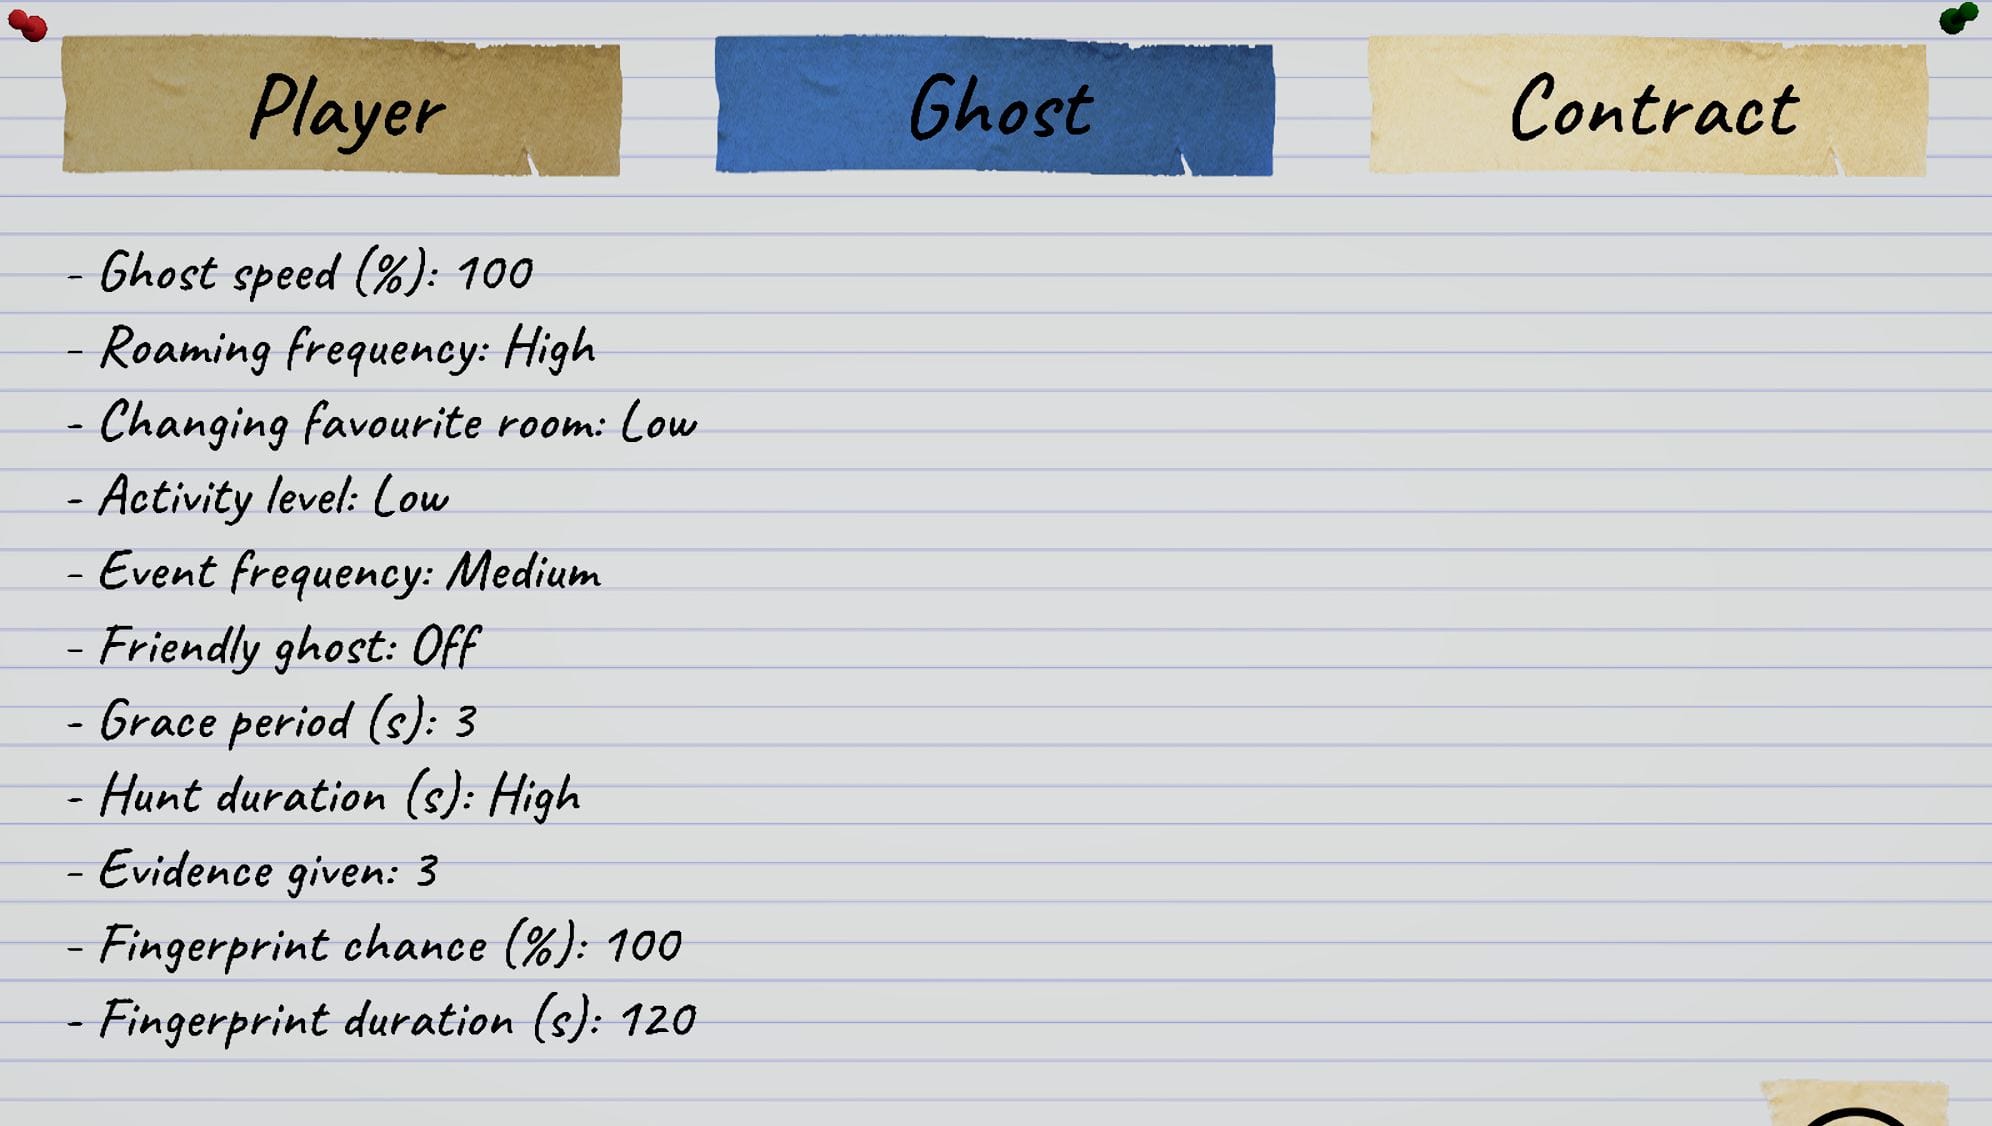 Player
Ghost
Contract
- Ghost speed (%): 100
- Roaming frequency: High
- Changing favourite room: Low
- Activity level: Low
- Event frequency: Medium
- Friendly ghost: Off
- Grace period (s): 3
- Hunt duration (s): High
- Evidence given: 3
- Fingerprint chance (%): 100
- Fingerprint duration (s): 120